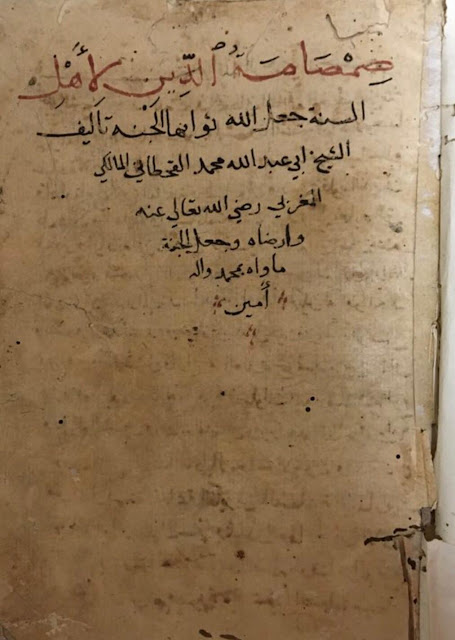 صمصامة الدين لأهل
السنة جعل الله ثوابها الجنة تأليف
الشيخ ابي عبد الله محمد القحطاني المالكي
المغربي رضي الله تعالى عنه
وارضاه وجعل الجنة
ماواه بمحمد واله
أمين